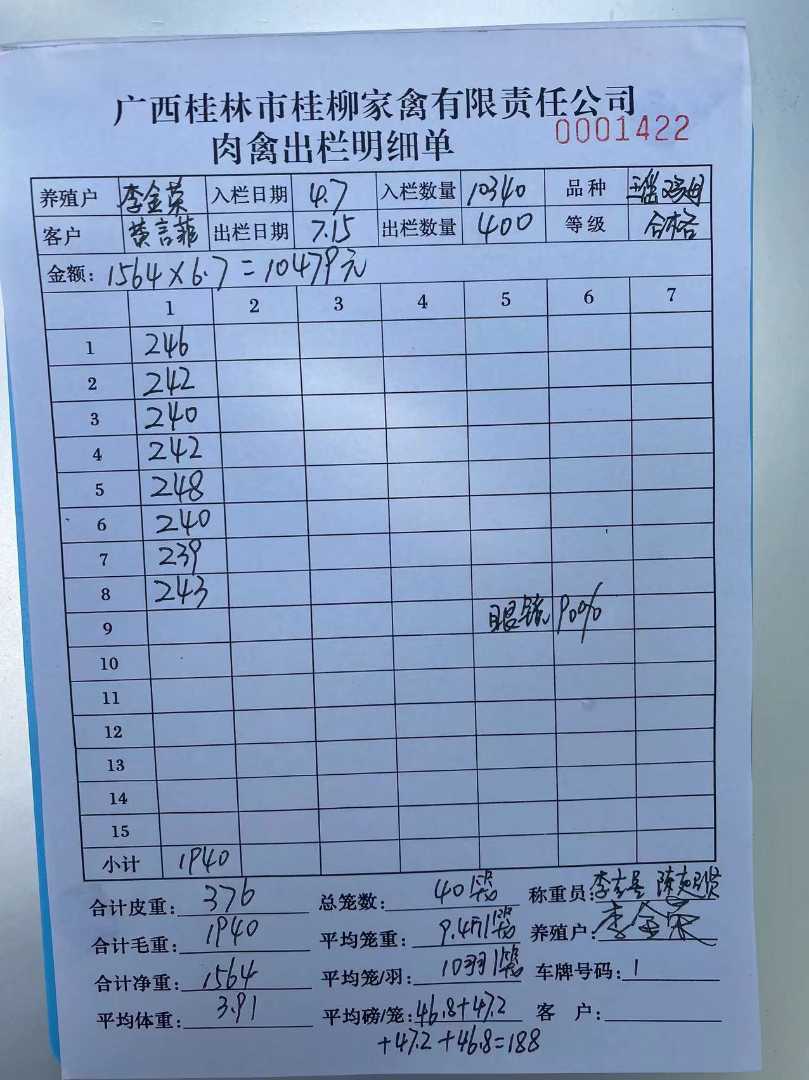 广西桂林市桂柳家禽有限责任公司
肉禽出栏明细单 0001422
养殖户 李金英 入栏日期 4.7 入栏数量 10340 品种
客户 黄言菲 出栏日期 7.15 出栏数量 400 等级 合格
金额: 1564×6.7=10479元
1 2 3 4 5 6 7
1 246
2 242
3 240
4 242
5 248
6 240
7 239
8 243
9 眼镜 90%
10
11
12
13
14
15
小计 1940
合计皮重: 376 总笼数: 40笼 称重员:
合计毛重: 1940 平均笼重: 9.4斤/笼 养殖户:
合计净重: 1564 平均笼/羽: 10羽/笼 车牌号码: 1
平均体重: 3.91 平均磅/笼: 46.8+47.2 客 户:
+47.2+46.8=188